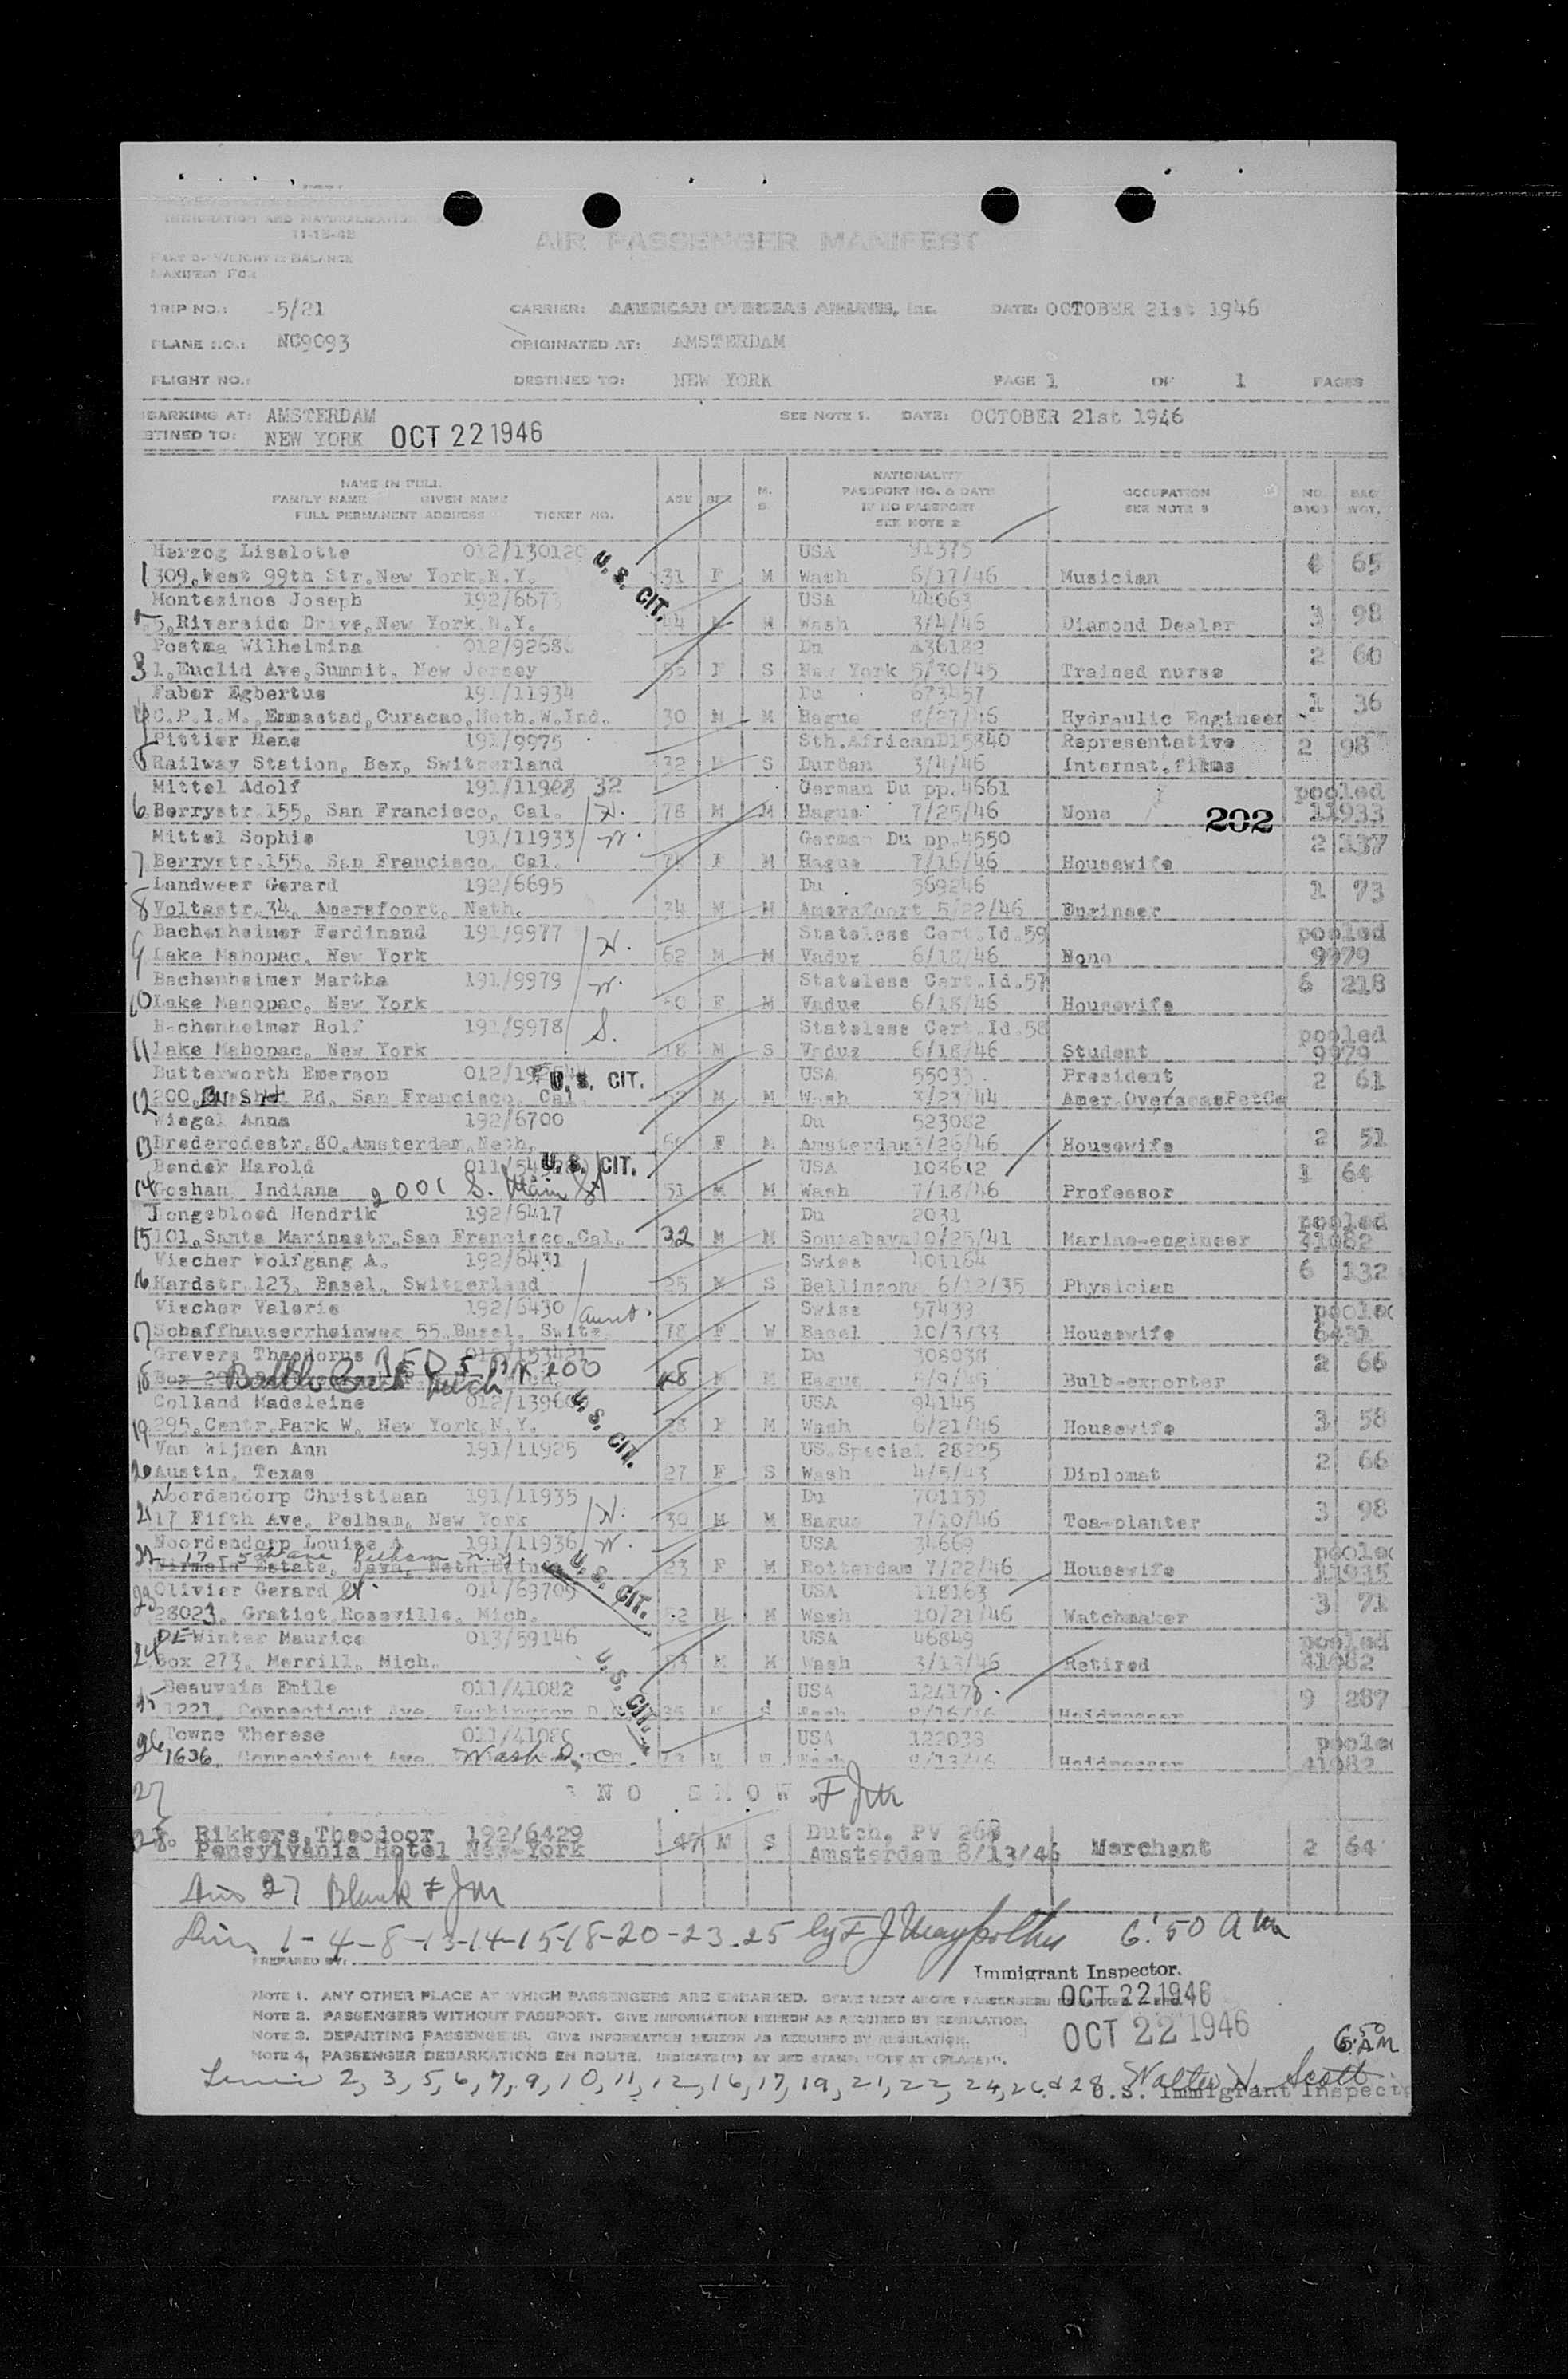 IMMIGRATION AND NATURALIZATION
11-15-45
AIR PASSENGER MANIFEST
PART OF WEIGHT & BALANCE
MANIFEST FOR
TRIP NO.: 5/21 CARRIER: AMERICAN OVERSEAS AIRLINES, Inc. DATE: OCTOBER 21st 1946
PLANE NO.: NC9093 ORIGINATED AT: AMSTERDAM
FLIGHT NO.: DESTINED TO: NEW YORK PAGE 1 OF 1 PAGES
BARKING AT: AMSTERDAM SEE NOTE 1. DATE: OCTOBER 21st 1946
STINED TO: NEW YORK OCT 22 1946
NAME IN FULL NATIONALITY
FAMILY NAME GIVEN NAME AGE SEX M. S. PASSPORT NO. & DATE OCCUPATION NO. BAGS BAG. WGT.
FULL PERMANENT ADDRESS TICKET NO. IF NO PASSPORT SEE NOTE 3
SEE NOTE 2
Herzog Liselotte 012/130120 U. S. CIT. USA 91375 65
1 309, West 99th Str. New York N.Y. 31 F M Wash 6/17/46 Musician
Montezinos Joseph 192/6673 USA 44063 3 98
5, Riverside Drive, New York N.Y. 44 M Wash 3/4/46 Diamond Dealer
Postma Wilhelmina 012/9268 Du A36182 2 60
3 1, Euclid Ave, Summit, New Jersey 56 F S New York 5/30/45 Trained nurse
Faber Egbertus 191/11934 Du 673457 1 36
4 C.P.I.M., Emmastad, Curacao, Neth. W. Ind. 30 M M Hague 8/27/46 Hydraulic Engineer
Pittier Rene 191/9975 Sth. African D15840 Representative 2 98
5 Railway Station, Bex, Switzerland 32 M S Durban 3/4/46 Internat. films
Mittel Adolf 191/119 32 German Du pp. 4661 pooled
6 Berrystr 155, San Francisco, Cal. H. 78 M M Hague 7/25/46 None 202 11933
Mittel Sophie 191/11933 W. German Du pp. 4550 2 337
7 Berrystr 155, San Francisco, Cal. 74 F M Hague 7/16/46 Housewife
Landweer Gerard 192/6695 Du 569246 1 73
8 Voltastr. 34, Amersfoort, Neth. 34 M M Amersfoort 5/22/46 Engineer
Bachenheimer Ferdinand 191/9977 H. Stateless Cert. Id. 59 pooled
9 Lake Mahopac, New York 62 M M Vaduz 6/18/46 None 9979
Bachenheimer Martha 191/9979 W. Stateless Cert. Id. 57 6 218
10 Lake Mahopac, New York 60 F M Vaduz 6/18/46 Housewife
Bachenheimer Rolf 191/9978 S. Stateless Cert. Id. 58 pooled
11 Lake Mahopac, New York 18 M S Vaduz 6/18/46 Student 9979
Butterworth Emerson U. S. CIT. USA 55033 President 2 61
12 200, Rd, San Francisco, Cal. M M Wash 3/23/44 Amer. Overseas Pet Co
Wiegel Anna 192/6700 Du 523082 2 51
13 Brederodestr. 80, Amsterdam, Neth. F M Amsterdam 3/26/46 Housewife
Bender Harold U. S. CIT. USA 108612 1 64
14 Goshan, Indiana 2001 S. Main St 51 M M Wash 7/18/46 Professor
Jongebloed Hendrik 192/6417 Du 2031 pooled
15 101, Santa Marinastr, San Francisco, Cal. 32 M M Sourabaya 10/25/41 Marine-engineer 41082
Vischer Wolfgang A. 192/6431 Swiss 401164 6 132
16 Hardstr. 123, Basel, Switzerland 25 M S Bellinzona 6/12/35 Physician
Vischer Valerie 192/6430 aunt. Swiss 57439 pooled
17 Schaffhauserrheinweg 55, Basel, Switz. 78 F W Basel 10/3/33 Housewife 6431
Gravers Theodorus Du 308038 2 66
18 Box Battle Creek Mich 48 M M Hague /9/46 Bulb-exporter
Colland Madeleine U. S. CIT. USA 94145 3 58
19 295, Centr. Park W, New York N.Y. 28 F M Wash 6/21/46 Housewife
Van Wijnen Ann 191/11925 US. Special 28225 2 66
20 Austin, Texas 27 F S Wash 4/5/43 Diplomat
Noordendorp Christiaan 191/11935 H. Du 3 98
21 17 Fifth Ave, Pelham, New York 30 M M Hague 7/10/46 Tea-planter
Noordendorp Louise A 191/11936 W. USA 34669 pooled
22 17 5th ave Pelham N.Y. U. S. CIT. 23 F M Rotterdam 7/22/46 Housewife 11935
Olivier Gerard 014/69709 USA 118163 3 71
23 28023, Gratiot, Roseville, Mich. M M Wash 10/21/46 Watchmaker
DE Winter Maurice 013/59146 USA 46849 pooled
24 Box 273, Merrill, Mich. U. S. CIT. M M Wash 3/13/46 Retired 41082
Beauvais Emile 011/41082 USA 124178 9 287
25 1221, Connecticut Ave. Washington D.C. S Wash
Towne Therese USA 122038 pooled
26 1636, Connecticut Ave. Wash D.C. 41082
27 NO SHOW. FJM
28. Rikkers, Theodoor 192/6429 47 M S Dutch, PV 268 Merchant 2 64
Pensylvania Hotel New-York Amsterdam 8/13/46
27 Blank FJM
1-4-8-13-14-15-18-20-23-25 by F J 6:50 AM
PREPARED BY:
Immigrant Inspector.
NOTE 1. ANY OTHER PLACE AT WHICH PASSENGERS ARE EMBARKED. STATE NEXT ABOVE PASSENGERS OCT 22 1946
NOTE 2. PASSENGERS WITHOUT PASSPORT. GIVE INFORMATION HEREON AS REQUIRED BY REGULATION.
NOTE 3. DEPARTING PASSENGERS. GIVE INFORMATION HEREON AS REQUIRED BY REGULATION. OCT 22 1946
NOTE 4. PASSENGER DEBARKATIONS EN ROUTE. INDICATE(D) BY RED STAMP "OFF AT (PLACE)". 6:50 AM
2, 3, 5, 6, 7, 9, 10, 11, 12, 16, 17, 19, 21, 22, 24, 26 & 28 Walter N. Scott
U.S. Immigrant Inspect